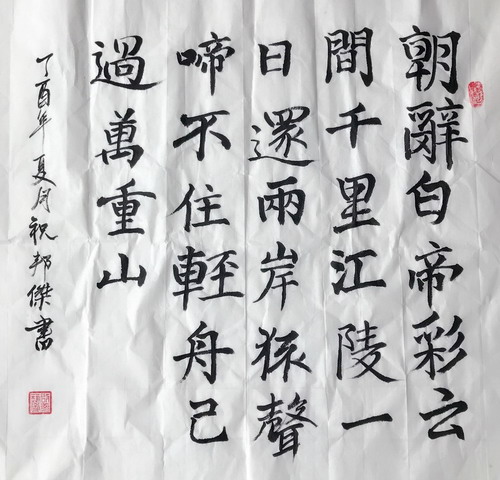 朝辭白帝彩云
間千里江陵一
日還兩岸猿聲
啼不住輕舟已
過萬重山
丁酉年夏月祝邦傑書